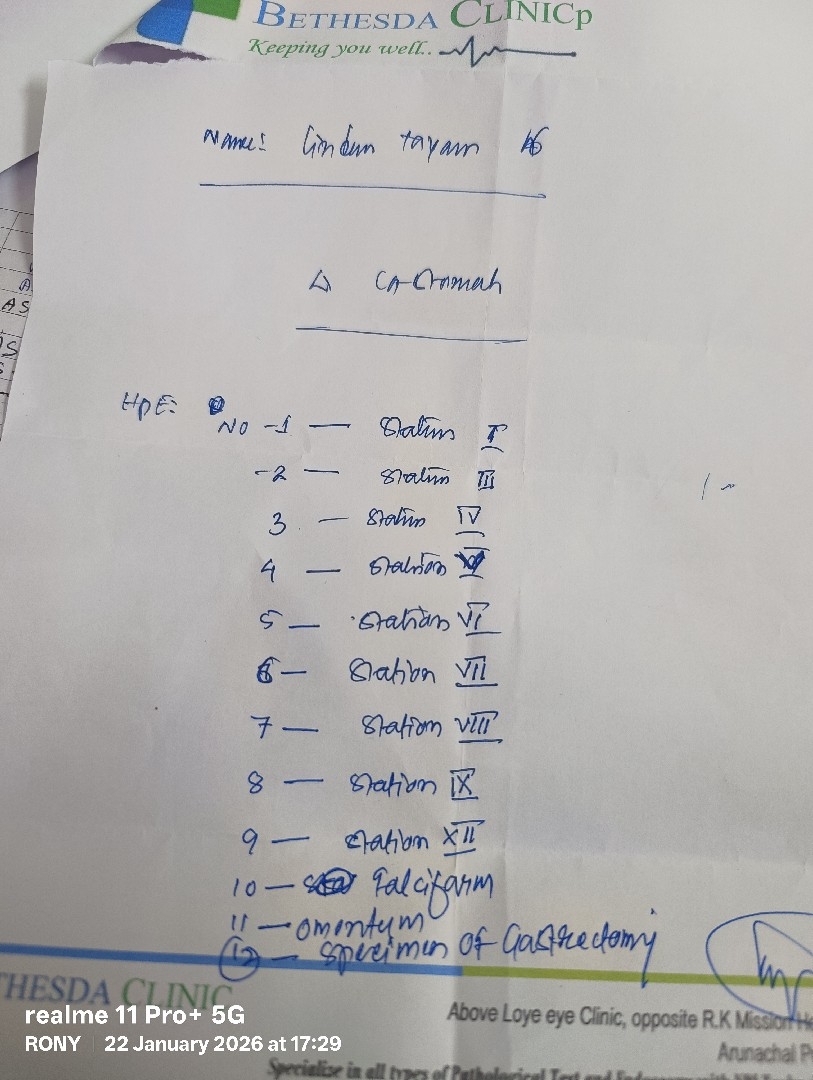 BETHESDA CLINICp
Keeping you well..
Name: tayam
Δ Ca-Stomah
HPE: No -1 — Station I
-2 — Station III
3 — Station IV
4 — Station V
5 — Station VI
6 — Station VII
7 — Station VIII
8 — Station IX
9 — Station XII
10 — Falciform
11 — omentum
12 — Specimen of Gastrectomy
THESDA CLINIC
Above Loye eye Clinic, opposite R.K Mission H
Arunachal P
Specialise in all types of Pathological Test and
realme 11 Pro+ 5G
RONY 22 January 2026 at 17:29